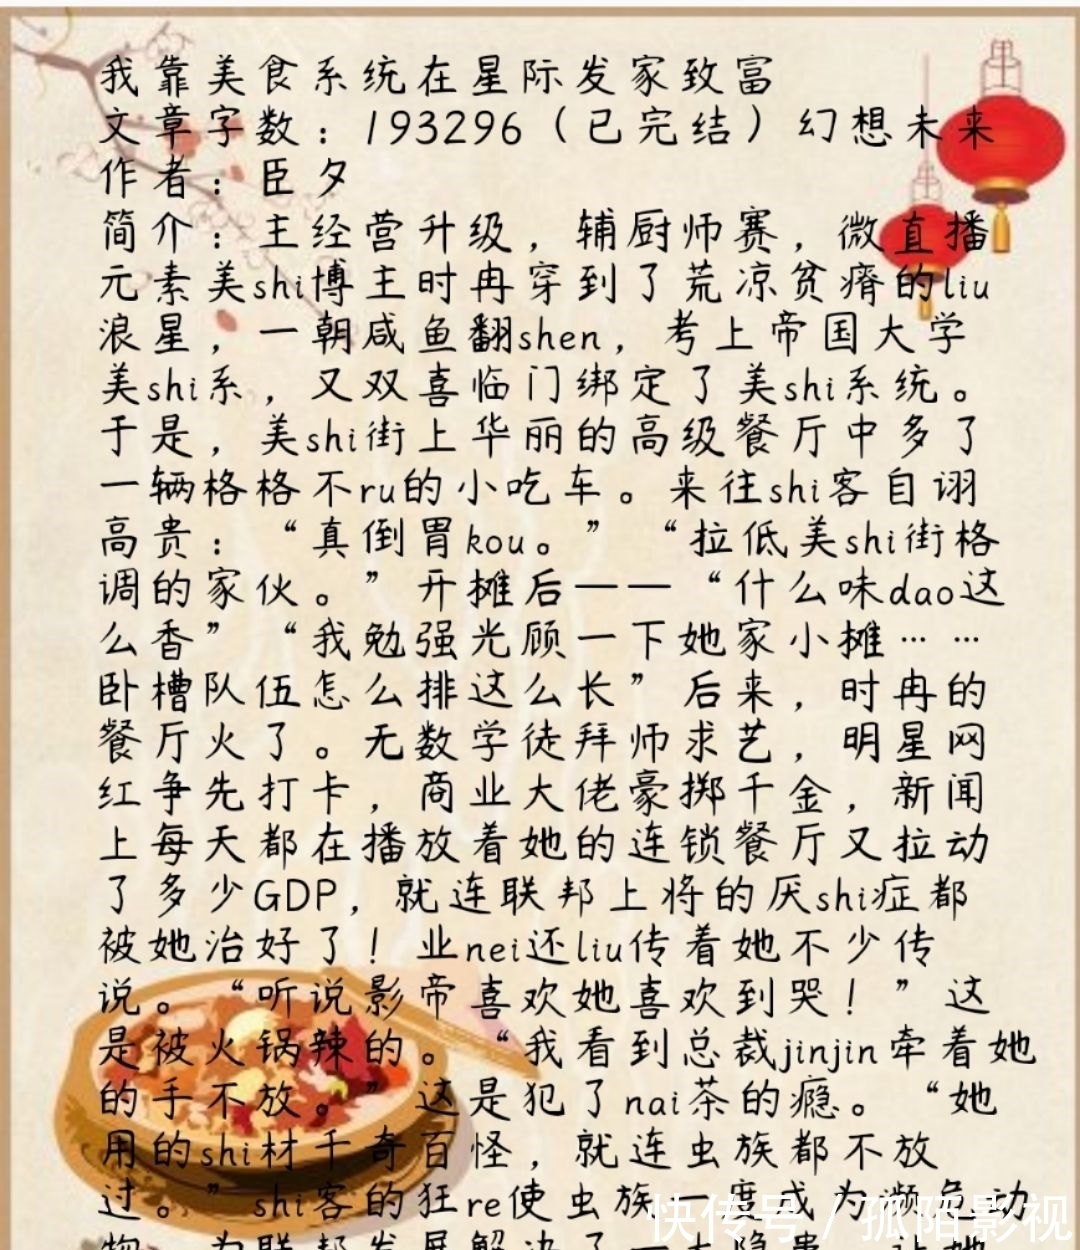 我靠美食系统在星际发家致富
文章字数：193296（已完结）幻想未来
作者：臣夕
简介：主经营升级，辅厨师赛，微直播
元素美shi博主时冉穿到了荒凉贫瘠的liu
浪星，一朝咸鱼翻shen，考上帝国大学
美shi系，又双喜临门绑定了美shi系统。
于是，美shi街上华丽的高级餐厅中多了
一辆格格不ru的小吃车。来往shi客自诩
高贵：“真倒胃kou。”“拉低美shi街格
调的家伙。”开摊后——“什么味dao这
么香”“我勉强光顾一下她家小摊……
卧槽队伍怎么排这么长”后来，时冉的
餐厅火了。无数学徒拜师求艺，明星网
红争先打卡，商业大佬豪掷千金，新闻
上每天都在播放着她的连锁餐厅又拉动
了多少GDP，就连联邦上将的厌shi症都
被她治好了！业nei还liu传着她不少传
说。“听说影帝喜欢她喜欢到哭！”这
是被火锅辣的。“我看到总裁jinjin牵着她
的手不放。”这是犯了nai茶的瘾。“她
用的shi材千奇百怪，就连虫族都不放
过。”shi客的狂re使虫族一度成为濒危动
物，为联邦发展解决了一大隐患，让她
快传号/孤陌影视